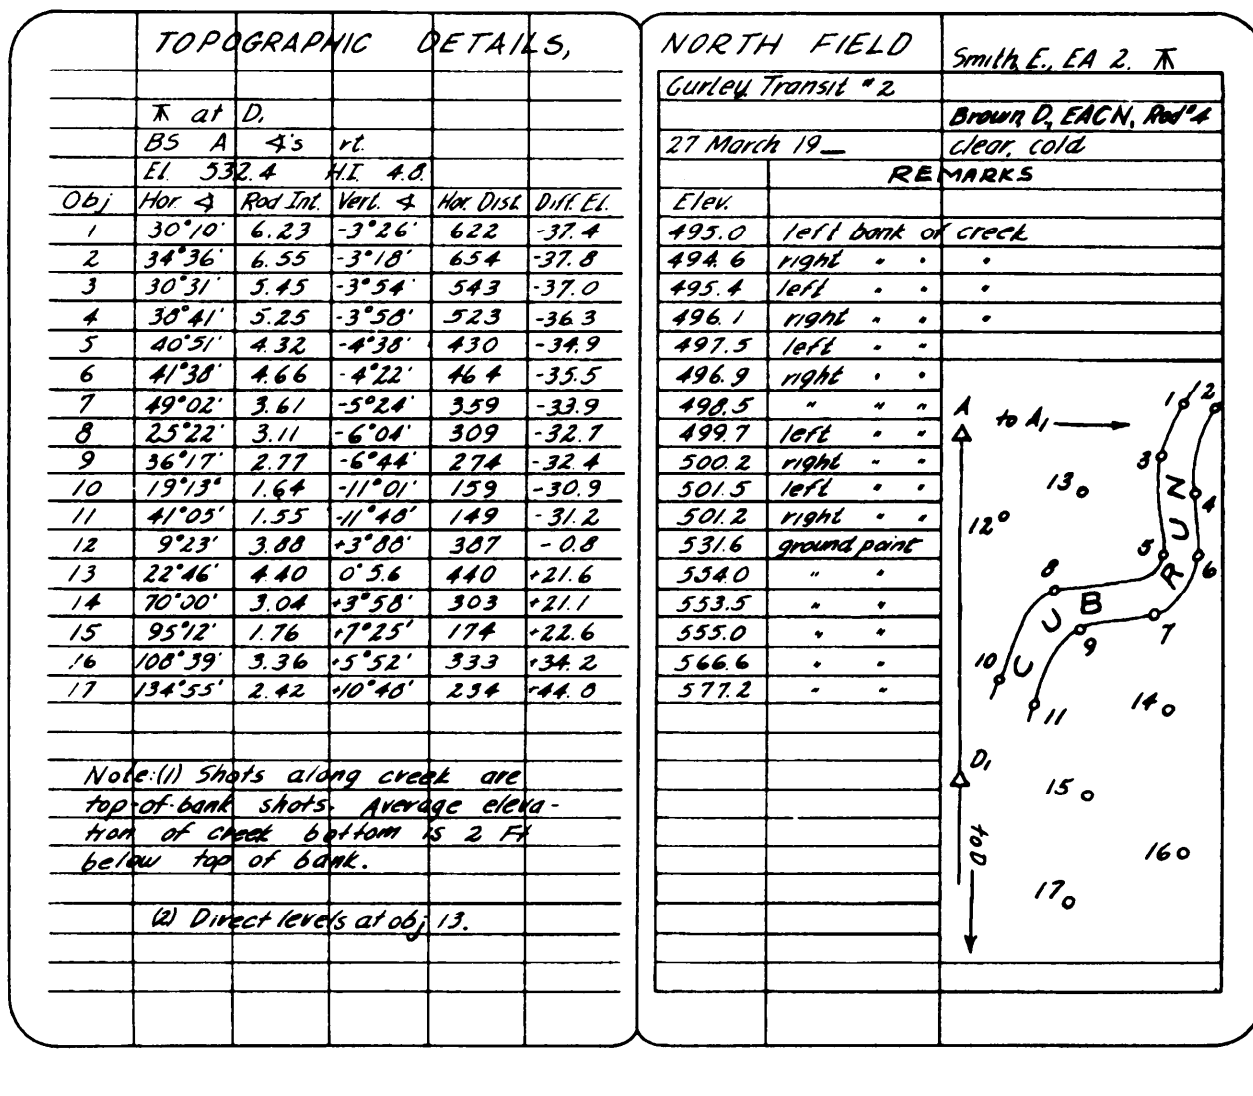 TOPOGRAPHIC DETAILS,
⊼ at D,
BS A ∠'s rt.
El. 532.4 H.I. 4.8.
Obj Hor. ∠ Rod Int. Vert. ∠ Hor. Dist. Diff. El.
1 30°10' 6.23 -3°26' 622 -37.4
2 34°36' 6.55 -3°18' 654 -37.8
3 30°31' 5.45 -3°54' 543 -37.0
4 38°41' 5.25 -3°58' 523 -36.3
5 40°51' 4.32 -4°38' 430 -34.9
6 41°38' 4.66 -4°22' 464 -35.5
7 49°02' 3.61 -5°24' 359 -33.9
8 25°22' 3.11 -6°04' 309 -32.7
9 36°17' 2.77 -6°44' 274 -32.4
10 19°13' 1.64 -11°01' 159 -30.9
11 41°05' 1.55 -11°48' 149 -31.2
12 9°23' 3.88 +3°88' 387 -0.8
13 22°46' 4.40 0°5.6 440 +21.6
14 70°00' 3.04 +3°58' 303 +21.1
15 95°12' 1.76 +7°25' 174 +22.6
16 108°39' 3.36 +5°52' 333 +34.2
17 134°55' 2.42 +10°48' 234 +44.8
Note:(1) Shots along creek are
top-of-bank shots. Average eleva-
tion of creek bottom is 2 Ft
below top of bank.
(2) Direct levels at obj 13.
NORTH FIELD
Smith, E., EA 2. ⊼
Gurley Transit #2
Brown, D, EACN, Rod #4
27 March 19_ clear, cold
REMARKS
Elev.
495.0 left bank of creek
494.6 right " " "
495.4 left " " "
496.1 right " " "
497.5 left " "
496.9 right " "
498.5 " " "
499.7 left " "
500.2 right " "
501.5 left " "
501.2 right " "
531.6 ground point
554.0 " "
553.5 " "
555.0 " "
566.6 " "
577.2 " "
1 2
A to A,
3
13
4
12
5
6
8
7
9
CUB RUN
10
11
14
D,
15
to D
16
17